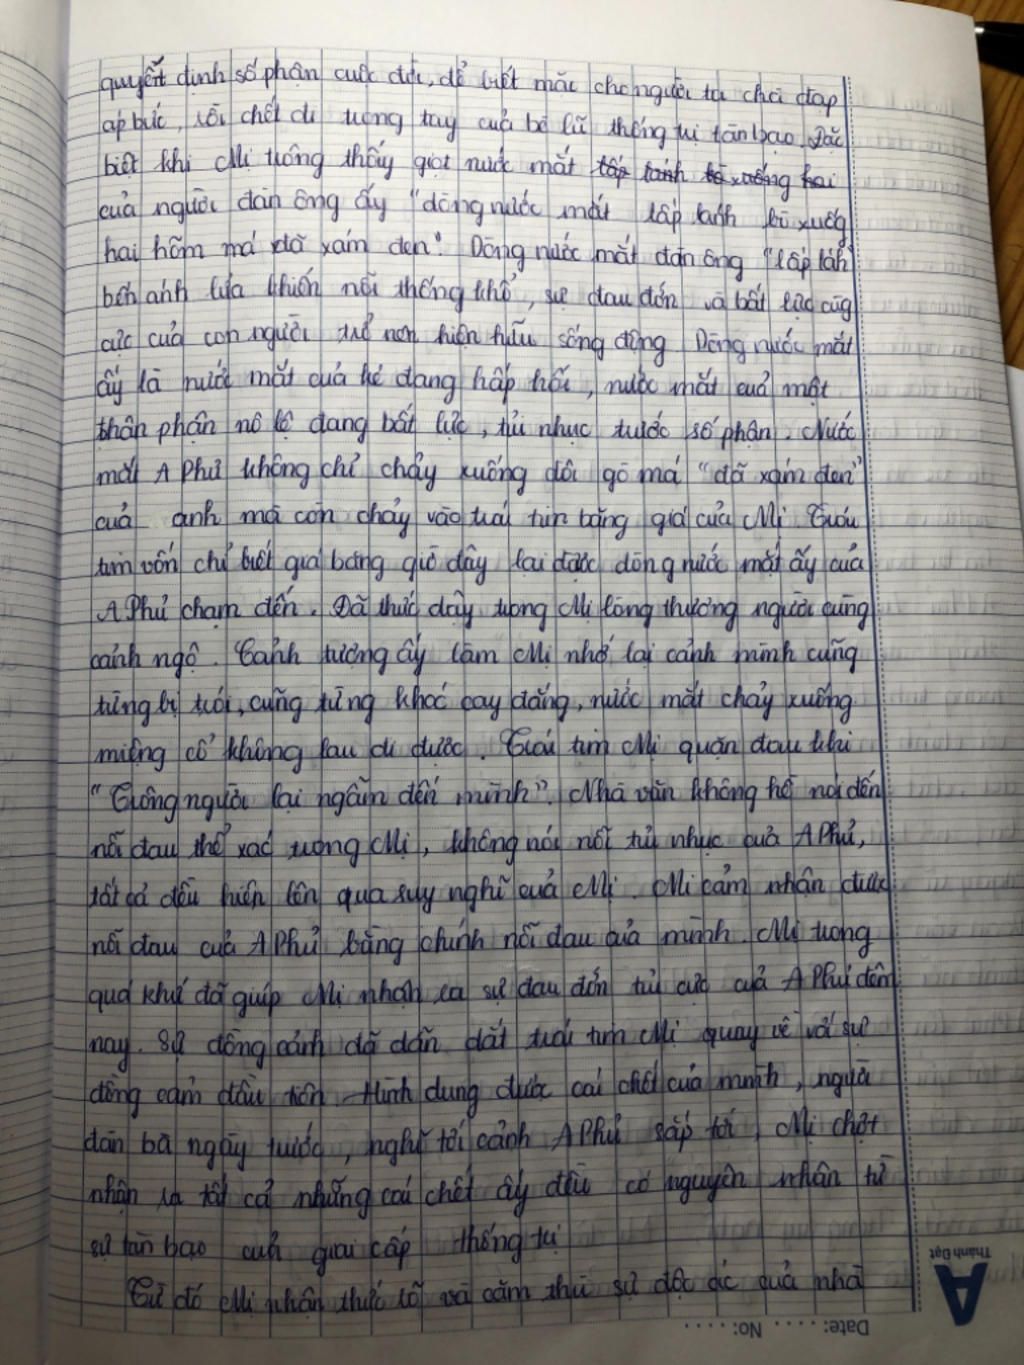 quyết định số phận cuộc đời, để biết mặc cho người ta chà đạp
áp bức, rồi chết đi trong tay của bè lũ thống trị tàn bạo. Đặc
biệt khi Mị trông thấy giọt nước mắt lấp lánh bò xuống hai
của người đàn ông ấy "dòng nước mắt lấp lánh bò xuống
hai hõm má đã xám đen". Dòng nước mắt đàn ông "lấp lánh"
bên ánh lửa khiến nỗi thống khổ, sự đau đớn và bất lực cùng
cực của con người trở nên hiện hữu sống động. Dòng nước mắt
ấy là nước mắt của kẻ đang hấp hối, nước mắt của một
thân phận nô lệ đang bất lực, tủi nhục trước số phận. Nước
mắt A Phủ không chỉ chảy xuống đôi gò má "đã xám đen"
của anh mà còn chảy vào trái tim băng giá của Mị. Trái
tim vốn chỉ biết giá băng giờ đây lại được dòng nước mắt ấy của
A Phủ chạm đến. Đã thức dậy trong Mị lòng thương người cùng
cảnh ngộ. Cảnh tượng ấy làm Mị nhớ lại cảnh mình cũng
từng bị trói, cũng từng khóc cay đắng, nước mắt chảy xuống
miệng cổ không lau đi được. Trái tim Mị quặn đau khi
"Trông người lại ngẫm đến mình". Nhà văn không hề nói đến
nỗi đau thể xác trong Mị, không nói nỗi tủi nhục của A Phủ,
tất cả đều hiện lên qua suy nghĩ của Mị. Mị cảm nhận được
nỗi đau của A Phủ bằng chính nỗi đau của mình. Mị trong
quá khứ đã giúp Mị nhận ra sự đau đớn tủi cực của A Phủ đêm
nay. Sự đồng cảnh đã dẫn dắt trái tim Mị quay về với sự
đồng cảm đầu tiên. Hình dung được cái chết của mình, người
đàn bà ngày trước, nghĩ tới cảnh A Phủ sắp tới, Mị chợt
nhận ra tất cả những cái chết ấy đều có nguyên nhân từ
sự tàn bạo của giai cấp thống trị
Từ đó Mị nhận thức rõ và căm thù sự độc ác của nhà
A
Thành Đạt
Date: ..... No: .....